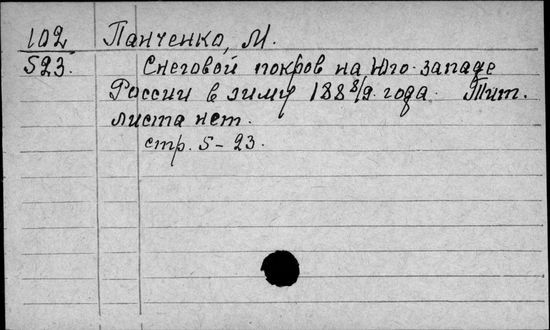 102 Панченко, М.
523. Снеговой покров на Юго-западе
России в зиму 188 8/9. года. Тит.
листа нет.
стр. 5-23.